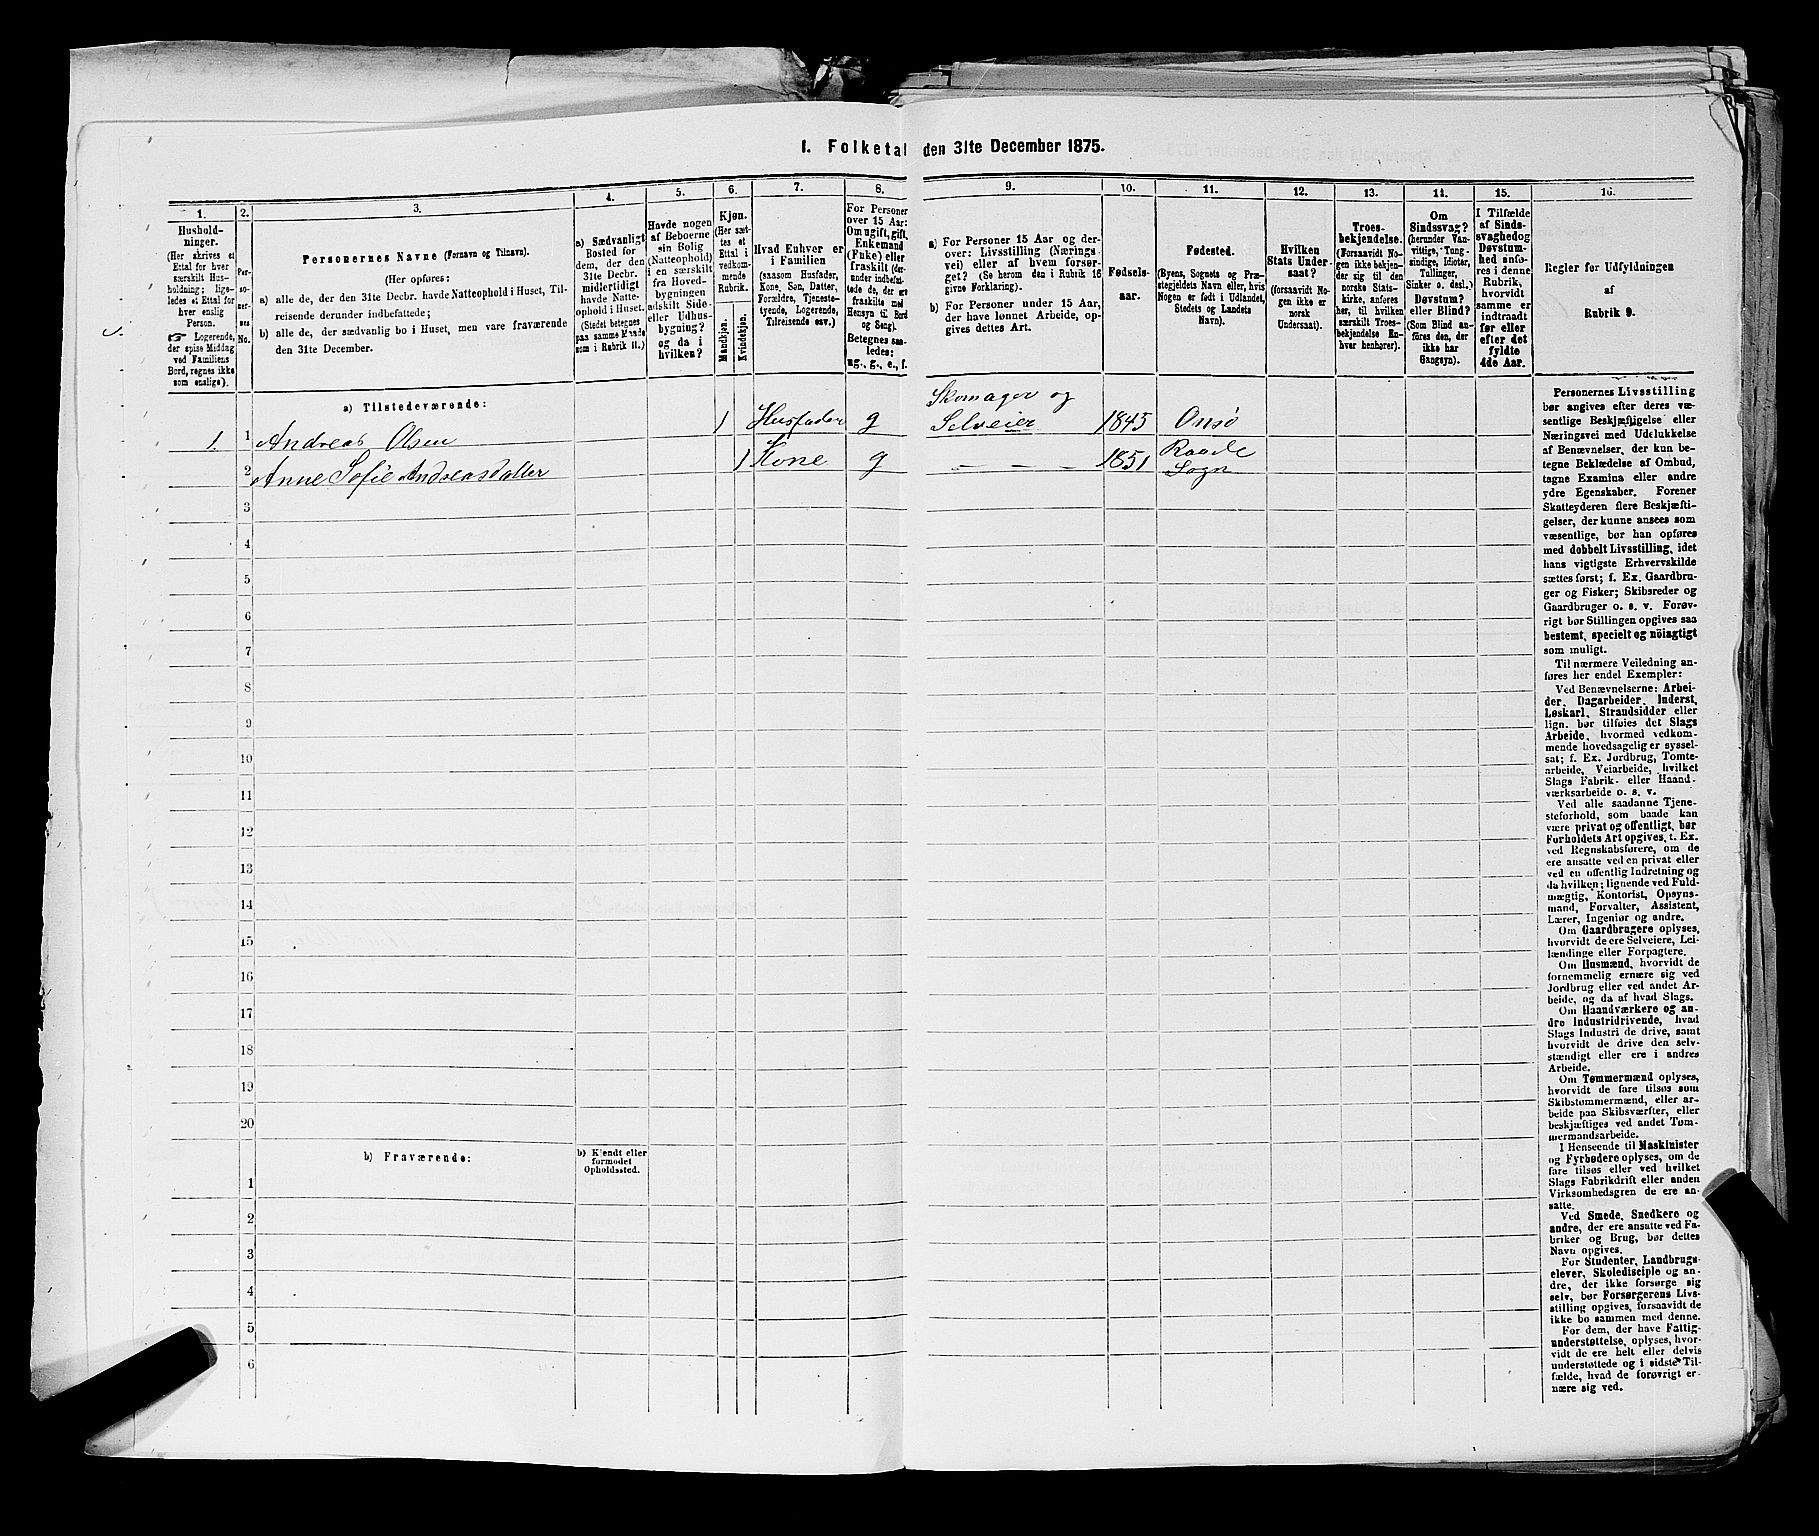 I. Folketal den 31te December 1875.
1.
2.
3.
4.
5.
6.
7.
8.
9.
10.
11.
12.
13.
14.
15.
16.
Hushold-
ninger.
(Her skrives et
Ettal for hver
særskilt Hus-
holdning; lige-
ledes et Ettal for
hver enslig
Person.
☞ Logerende,
der spise Middag
ved Familiens
Bord, regnes ikke
som enslige).
Per-
so-
ner-
nes
No.
Personernes Navne (Fornavn og Tilnavn).
(Her opføres:
a) alle de, der den 31te Decbr. havde Natteophold i Huset, Til-
reisende derunder indbefattede;
b) alle de, der sædvanlig bo i Huset, men vare fraværende
den 31te December.
a) Sædvanligt
Bosted for
dem, der den
31te Decbr.
midlertidigt
havde Natte-
ophold i Huset.
(Stedet betegnes
paa samme Maade
som i Rubrik 11.)
Havde nogen
af Beboerne
sin Bolig
(Natteophold)
i en særskilt
fra Hoved-
bygningen
adskilt Side-
eller Udhus-
bygning?
og da i
hvilken?
Kjøn.
(Her sæt-
tes et
Ettal i
vedkom-
mende
Rubrik.
Mandkjøn.
Kvindekjøn.
Hvad Enhver er
i Familien
(saasom Husfader,
Kone, Søn, Datter,
Forældre, Tjeneste-
tyende, Logerende,
Tilreisende osv.)
For Personer
over 15 Aar:
Om ugift, gift,
Enkemand
(Enke) eller
fraskilt (der-
under indbefat-
tede de, der ere
fraskilte med
Hensyn til Bord
og Seng).
Betegnes saa-
ledes:
ug., g., e., f.
a) For Personer 15 Aar og der-
over: Livsstilling (Nærings-
vei) eller af hvem forsør-
get? (Se herom den i Rubrik 16
givne Forklaring).
b) For Personer under 15 Aar,
der have lønnet Arbeide, op-
gives dettes Art.
Fødsels-
aar.
Fødested.
(Byens, Sognets og Præ-
stegjeldets Navn eller, hvis
Nogen er født i Udlandet,
Stedets og Landets
Navn).
Hvilken
Stats Under
saat?
(forsaavidt No-
gen ikke er
norsk
Undersaat).
Troes-
bekjendelse.
(Forsaavidt No-
gen ikke bekjen-
der sig til den
norske Stats-
kirke, anføres
her, til hvilken
særskilt Troes-
bekjendelse En-
hver henhører).
Om
Sindssvag?
(herunder Van-
vittige, Tung-
sindige, Idioter,
Tullinger,
Sinker o. desl.)
Døvstum?
eller Blind?
(Som Blind an-
føres den, der
ikke har
Gangsyn).
I Tilfælde
af Sinds-
svaghed og
Døvstum-
hed anfø-
res i denne
Rubrik,
hvorvidt
samme er
indtraadt
før eller
efter det
fyldte
4de Aar.
Regler for Udfyldningen
af
Rubrik 9.
a) Tilstedeværende:
1. 1 Andreas Olsen 1 Husfader g Skomager og Selveier 1845 Onsø
2 Anne Sofie Andreasdatter 1 Kone g — — — 1851 Raade Sogn
3
4
5
6
7
8
9
10
11
12
13
14
15
16
17
18
19
20
b) Fraværende:
b) Kjendt eller
formodet
Opholdssted.
1
2
3
4
5
6
Personernes Livsstilling
bør angives efter deres væ-
sentlige Beskjæftigelse eller
Næringsvei med Udelukkelse
af Benævnelser, der kun be-
tegne Beklædelse af Ombud,
tagne Examina eller andre
ydre Egenskaber. Forener
Skatteyderen flere Beskjæfti-
gelser, der kunne ansees som
væsentlige, bør han opføres
med dobbelt Livsstilling, idet
hans vigtigste Erhvervskilde
sættes først; f. Ex. Gaardbru-
ger og Fisker; Skibsreder og
Gaardbruger o. s. v. Forøv-
rigt bør Stillingen opgives saa
bestemt, specielt og nöiagtigt
som muligt.
Til nærmere Veiledning an-
føres her endel Exempler:
Ved Benævnelserne: Arbei-
der, Dagarbeider, Inderst,
Løskarl, Strandsidder eller
lign. bør tilføies det Slags
Arbeide, hvormed vedkom-
mende hovedsagelig er syssel-
sat; f. Ex. Jordbrug, Tomte-
arbeide, Veiarbeide, hvilket
Slags Fabrik- eller Haand-
værksarbeide o. s. v.
Ved alle saadanne Tjene-
steforhold, som baade kan
være privat og offentligt, bør
Forholdets Art opgives, t. Ex.
ved Regnskabsførere, om de
ere ansatte ved en privat eller
ved en offentlig Indretning og
da hvilken; lignende ved Fuld-
mægtig, Kontorist, Opsyns-
mand, Forvalter, Assistent,
Lærer, Ingeniør og andre.
Om Gaardbrugere oplyses,
hvorvidt de ere Selveiere, Lei-
lændinge eller Forpagtere.
Om Husmænd, hvorvidt de
fornemmelig ernære sig ved
Jordbrug eller ved andet Ar-
beide, og da af hvad Slags.
Om Haandværkere og an-
dre Industridrivende, hvad
Slags Industri de drive, samt
hvorvidt de drive den selv-
stændigt eller ere i andres
Arbeide.
Om Tømmermænd oplyses,
hvorvidt de fare tilsøs som
Skibstømmermænd, eller ar-
beide paa Skibsværfter, eller
beskjæftiges ved andet Tøm-
mermandsarbeide.
I Henseende til Maskinister
og Fyrbødere oplyses, om de
fare tilsøs eller ved hvilket
Slags Fabrikdrift eller anden
Virksomhedsgren de ere an-
satte.
Ved Smede, Snedkere og
andre, der ere ansatte ved Fa-
briker og Brug, bør dettes
Navn opgives.
For Studenter, Landbrugs-
elever, Skoledisciple og an-
dre, der ikke forsørge sig
selv, bør Forsørgerens Livs-
stilling opgives, forsaavidt de
ikke bo sammen med denne.
For dem, der have Fattig-
understøttelse, oplyses, hvor-
vidt de ere helt eller delvis
understøttede og i sidste Til-
fælde, hvad de forøvrigt er-
nære sig ved.